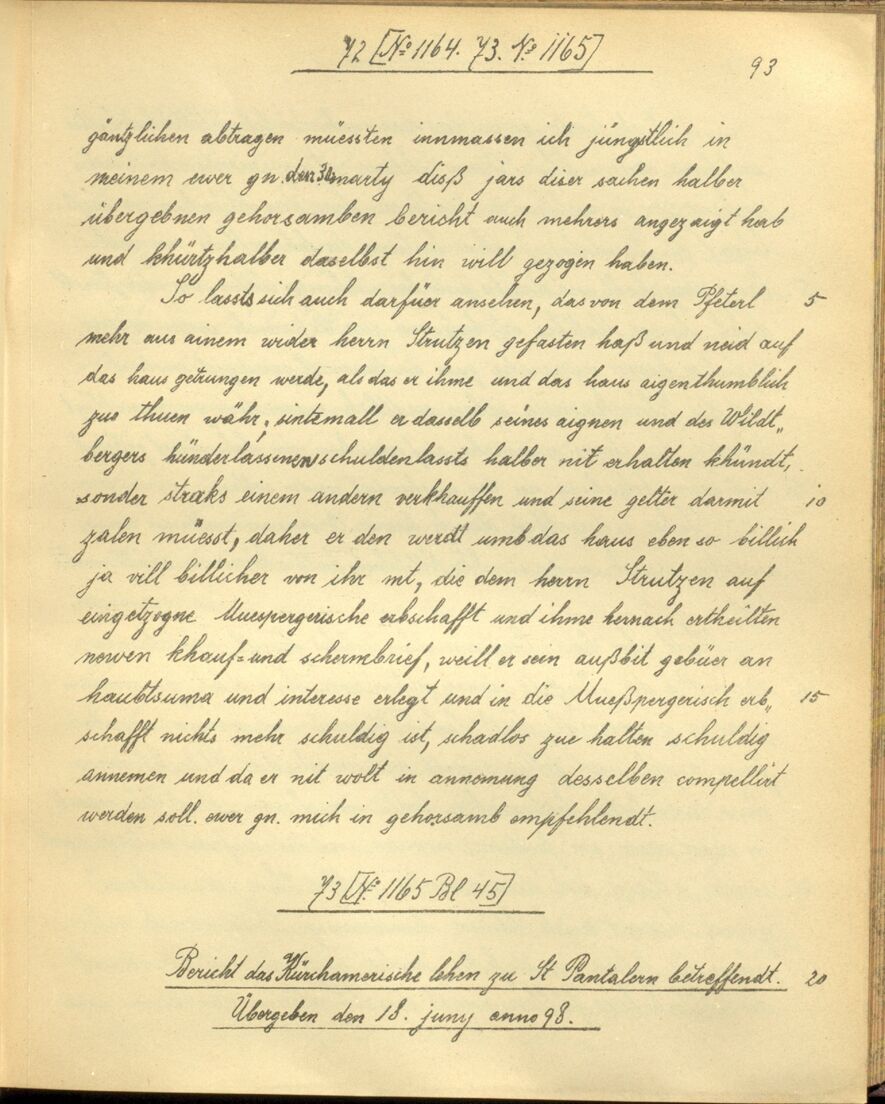 72 [No 1164. 73. No 1165]
93
gäntzlichen abtragen müessten innmassen ich jüngstlich in
meinem ewer gn. den 30 marty disß jars diser sachen halber
übergebnen gehorsamben bericht auch mehrers angezaigt hab
und khürtzhalber daselbst hin will gezogen haben.
So lassts sich auch darfüer ansehen, das von dem Pfeterl 5
mehr aus ainem wider herrn Strutzen gefasten haß und neid auf
das haus getrungen werde, als das er ihme und das haus aigenthumblich
zue thuen währ, sintemall er dasselb seines aignen und des Wildt„
bergers hünderlassenen schuldenlassts halber nit erhalten khündt,
sonder straks einem andern verkhauffen und seine gelter darmit 10
zalen müesst, daher er den werdt umb das haus eben so billich
ja vill billicher von ihr mt, die dem herrn Strutzen auf
eingetzogne Muespergerische erbschafft und ihme hernach ertheilten
newen khauf= und schermbrief, weill er sein außbit gebüer an
haubtsuma und interesse erlegt und in die Mueßpergerisch erb„ 15
schafft nichts mehr schuldig ist, schadlos zue halten schuldig
annemen und da er nit wolt in annemung desselben compellirt
werden soll. ewer gn. mich in gehorsamb empfehlendt.
73 [No 1165 Bl 45]
Bericht das Kürchamerische lehen zu St Pantalern betreffendt. 20
Übergeben den 18. juny anno 98.